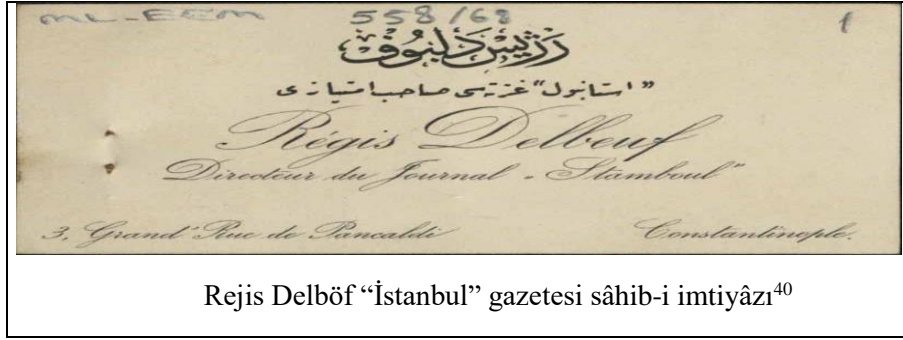 ML-EEM 558/68 1
رژیس دلبوف
"استانبول" غزته سی صاحب امتیازی
Régis Delbeuf
Directeur du Journal „Stamboul"
3, Grand' Rue de Pancaldi Constantinople.
Rejis Delböf “İstanbul” gazetesi sâhib-i imtiyâzı⁴⁰